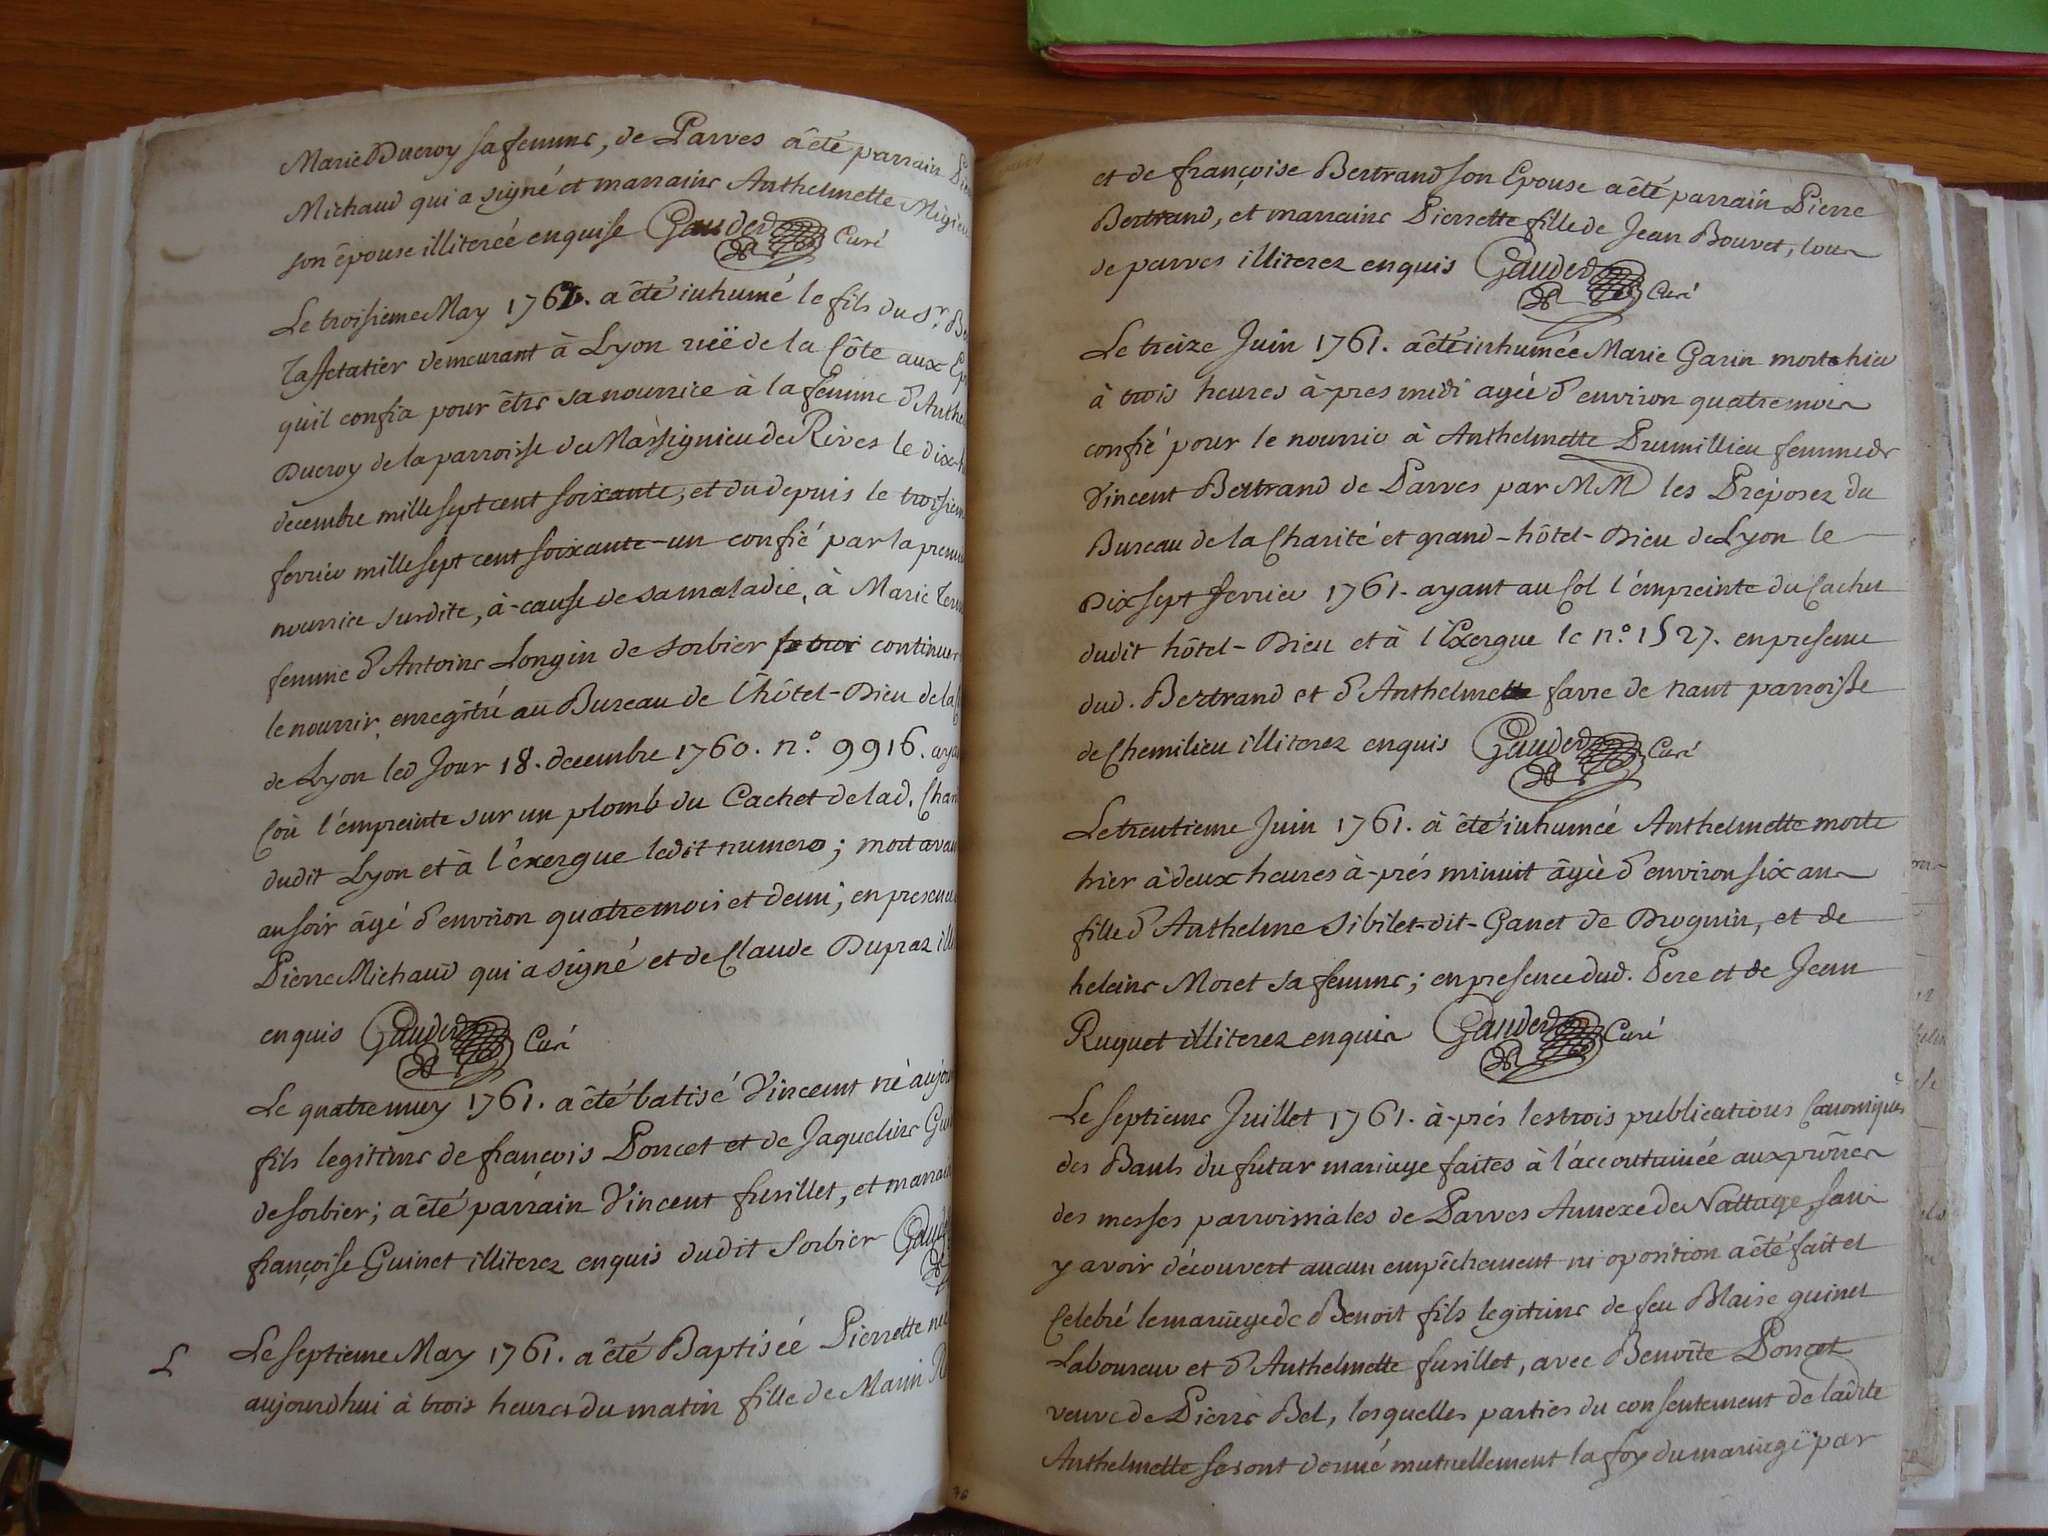 Marie Ducroy sa femme, de Parves a été parrain
Michaud qui a signé et marraine Anthelmette Migieu
son épouse illiterée enquise Gauded Curé
Le troisieme May 1761. a été inhumé le fils du Sr.
Taffetatier demeurant à Lyon ruë de la Côte aux
qu'il confia pour être sa nourrice à la femme d'
Ducroy de la parroisse de Massignieu de Rives le
decembre mille sept cent soixante, et du depuis le
fevrier mille sept cent soixante-un confié par la
nourrice susdite, à-cause de sa maladie, à Marie
femme d'Antoine Longin de sorbier continuer
le nourrir, enregitré au Bureau de l'hôtel-Dieu de la
de Lyon led Jour 18. decembre 1760. n.o 9916.
Coû l'émpreinte sur un plomb du Cachet de lad.
dudit Lyon et à l'éxergue ledit numero; mort
au soir âgé d'environ quatre mois et demi; en
Pierre Michaud qui a signé et de Claude Dupraz
enquis Gauded Curé
Le quatre may 1761. a été batisé Vincent né
fils legitime de françois Poncet et de Jaqueline
de sorbier; a été parrain Vincent fusillet, et
françoise Guinet illiterez enquis dudit Sorbier
L Le septieme May 1761. a été Baptisée Pierrette
aujourdhui à trois heures du matin fille de Marin
et de françoise Bertrand son Epouse a été parrain Pierre
Bertrand, et marraine Pierrette fille de Jean Bouvet, tous
de parves illiterez enquis Gauded Curé
Le treize Juin 1761. a été inhumée Marie Garin morte hier
à trois heures à-pres midi agée d'environ quatre mois
confié pour le nourrir à Anthelmette Prumillieu femme de
Vincent Bertrand de Parves par MM les Préposez du
Bureau de la Charité et grand-hôtel-Dieu de Lyon le
Dix sept fevrier 1761. ayant au Col l'émpreinte du Cachet
dudit hôtel-Dieu et à l'Exergue le n.o 1527. en presence
dud. Bertrand et d'Anthelmette favre de nant parroisse
de Chemilieu illiterez enquis Gauded Curé
Le trentieme Juin 1761. à été inhumée Anthelmette morte
hier à deux heures à-prés minuit âgée d'environ six ans
fille d'Anthelme Sibilet-dit-Ganet de Droguin, et de
heleine Moret sa femme; en presence dud. Pere et de Jean
Ruguet illiterez enquis Gauded Curé
Le septieme Juillet 1761. à-prés les trois publications Canoniques
des Bants du futur mariage faites à l'accoutumée aux prônes
des messes parroissiales de Parves Annexe de Nattage, sans
y avoir découvert aucun empêchement ni oposition a été fait et
Celebré le mariage de Benoit fils legitime de feu Blaise guinet
Laboureur et d'Anthelmette fusillet, avec Benoite Poncet
veuve de Pierre Bel, lesquelles parties du consentement de ladite
Anthelmette se sont donné mutuellement la foy du mariage par